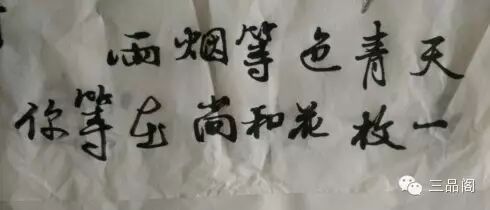 天青色等烟雨
一枚花和尚在等你
三品阁